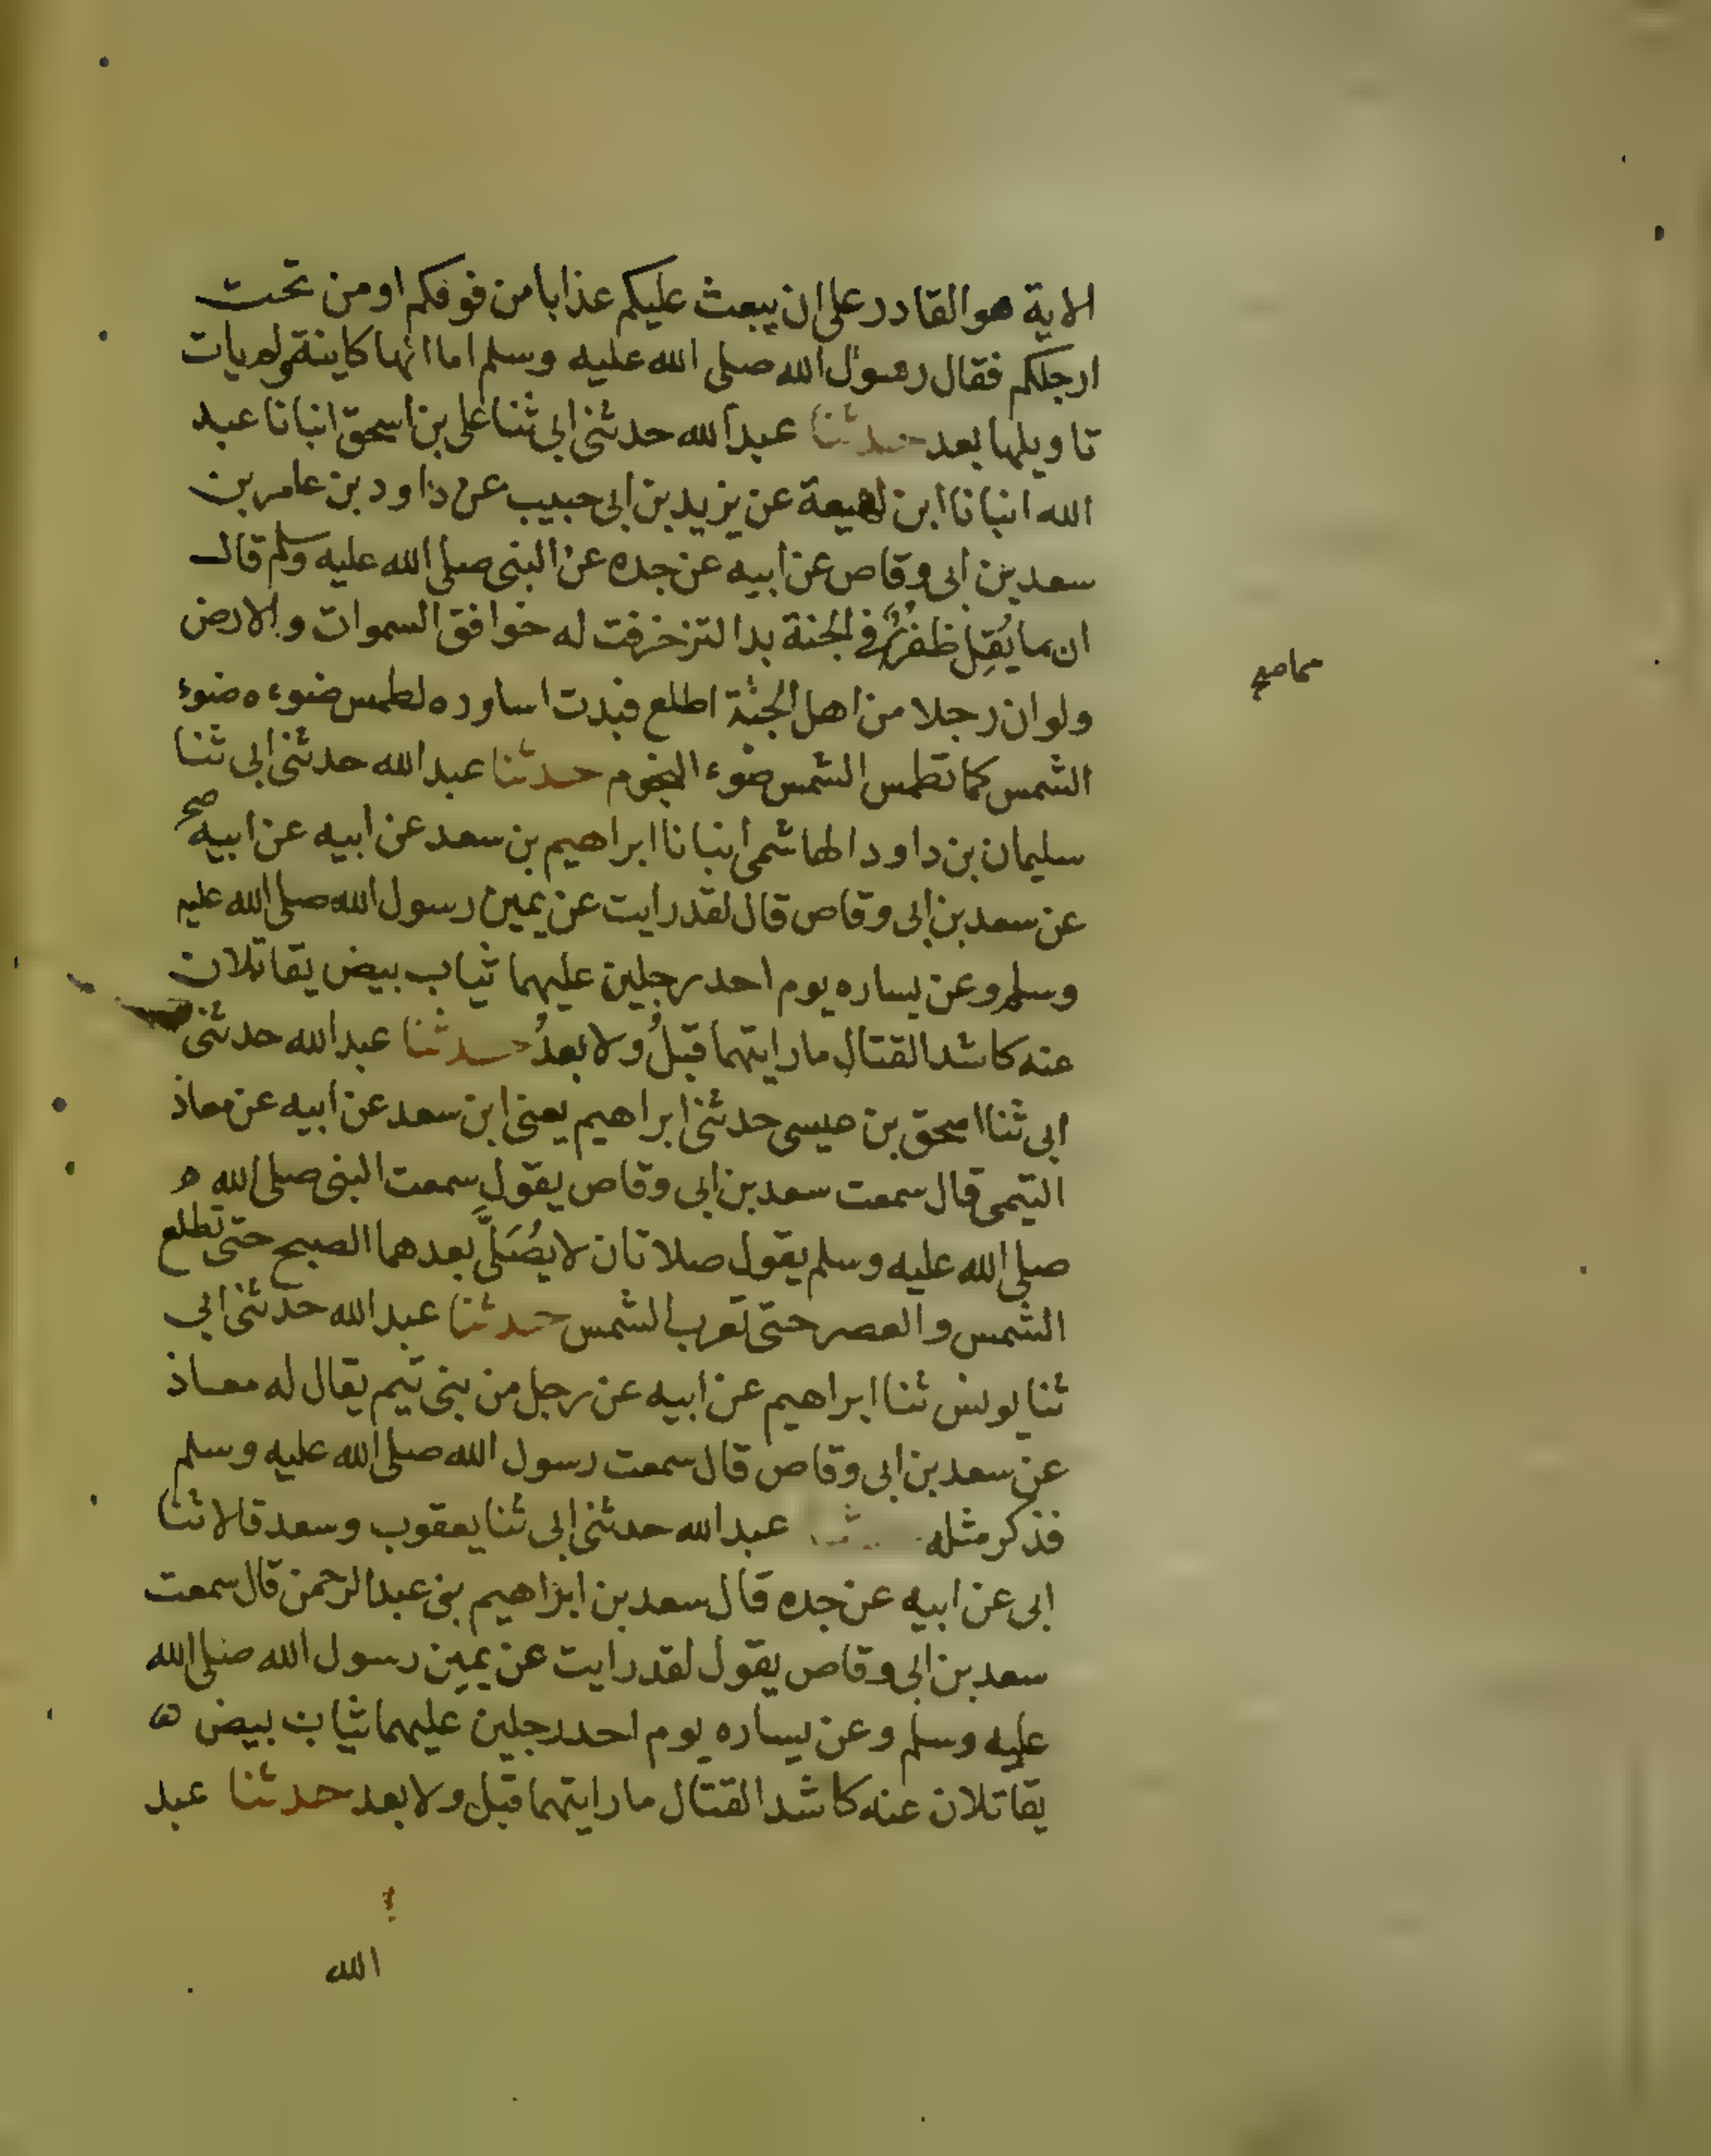 الاية هو القادر على ان يبعث عليكم عذابا من فوقكم او من تحت
ارجلكم فقال رسول الله صلى الله عليه وسلم اما انها كاينة ولم يات
تاويلها بعد حدثنا عبد الله حدثنى ابى ثنا على بن اسحق انبانا عبد
الله انبانا ابن لهيعة عن يزيد بن ابى حبيب عن داود بن عامر بن
سعد بن ابى وقاص عن ابيه عن جده عن النبى صلى الله عليه وسلم قال
ان ما يُقِل ظفرٌ فى الجنة بدا لتزخرفت له خوافق السموات والارض
ولو ان رجلا من اهل الجنة اطلع فبدت اساوره لطمس ضوءه ضوء
الشمس كما تطمس الشمس ضوء النجوم حدثنا عبد الله حدثنى ابى ثنا
سليمان بن داود الهاشمى انبانا ابراهيم بن سعد عن ابيه عن ابيه صح
عن سعد بن ابى وقاص قال لقد رايت عن يمين رسول الله صلى الله عليه
وسلم وعن يساره يوم احد رجلين عليهما ثياب بيض يقاتلان
عنه كاشد القتال ما رايتهما قبلُ ولا بعدُ حدثنا عبد الله حدثنى
ابى ثنا اسحق بن عيسى حدثنى ابراهيم يعنى ابن سعد عن ابيه عن معاذ
التيمى قال سمعت سعد بن ابى وقاص يقول سمعت النبى صلى الله ه
صلى الله عليه وسلم يقول صلاتان لا يصُلَّى بعدهما الصبح حتى تطلع
الشمس والعصر حتى تغرب الشمس حدثنا عبد الله حدثنى ابي
ثنا يونس ثنا ابراهيم عن ابيه عن رجل من بنى تيم يقال له معاذ
عن سعد بن ابى وقاص قال سمعت رسول الله صلى الله عليه وسلم
فذكر مثله حدثنا عبد الله حدثنى ابى ثنا يعقوب وسعد قالا ثنا
ابى عن ابيه عن جده قال سعد بن ابراهيم بن عبد الرحمن قال سمعت
سعد بن ابى وقاص يقول لقد رايت عن يمين رسول الله صلى الله
عليه وسلم وعن يساره يوم احد رجلين عليهما ثياب بيض ه
يقاتلان عنه كاشد القتال ما رايتهما قبل ولا بعد حدثنا عبد
الله